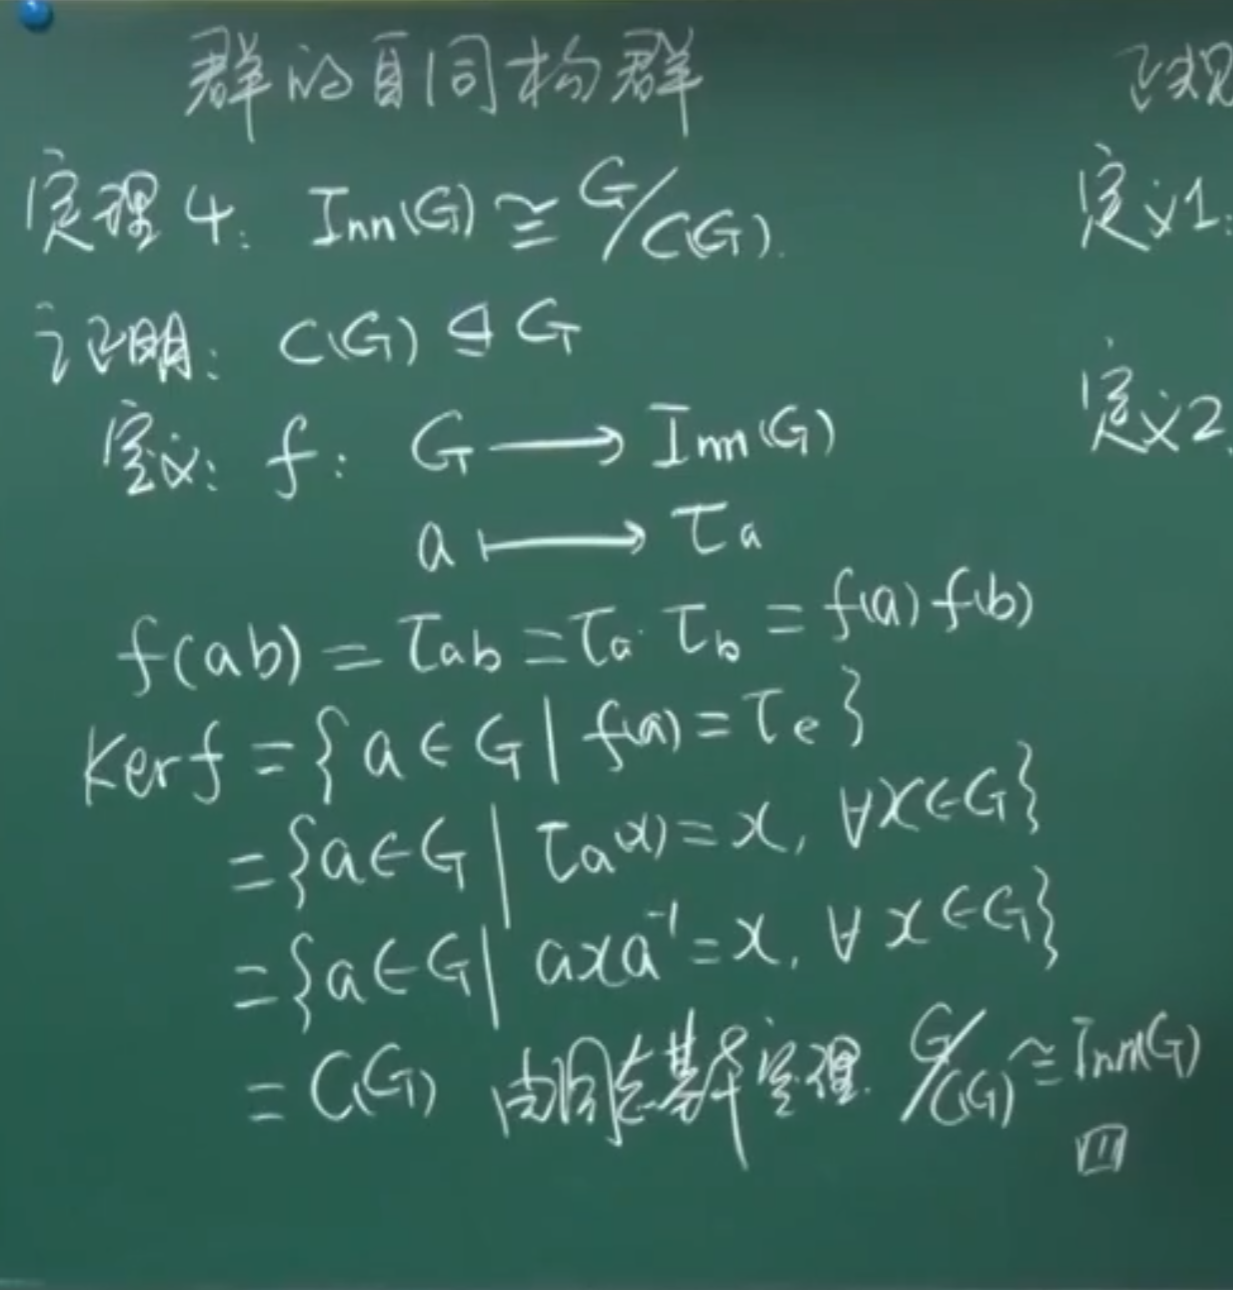 群的自同构群
定理4: Inn(G) ≅ G/C(G).
证明: C(G) ⊴ G
定义: f: G ⟶ Inn(G)
a ⟼ τa
f(ab) = τab = τa·τb = f(a)f(b)
Kerf = {a∈G | f(a) = τe}
= {a∈G | τa(x) = x, ∀x∈G}
= {a∈G | axa⁻¹ = x, ∀x∈G}
= C(G) 由同态基本定理. G/C(G) ≅ Inn(G)
定义1:
定义2.